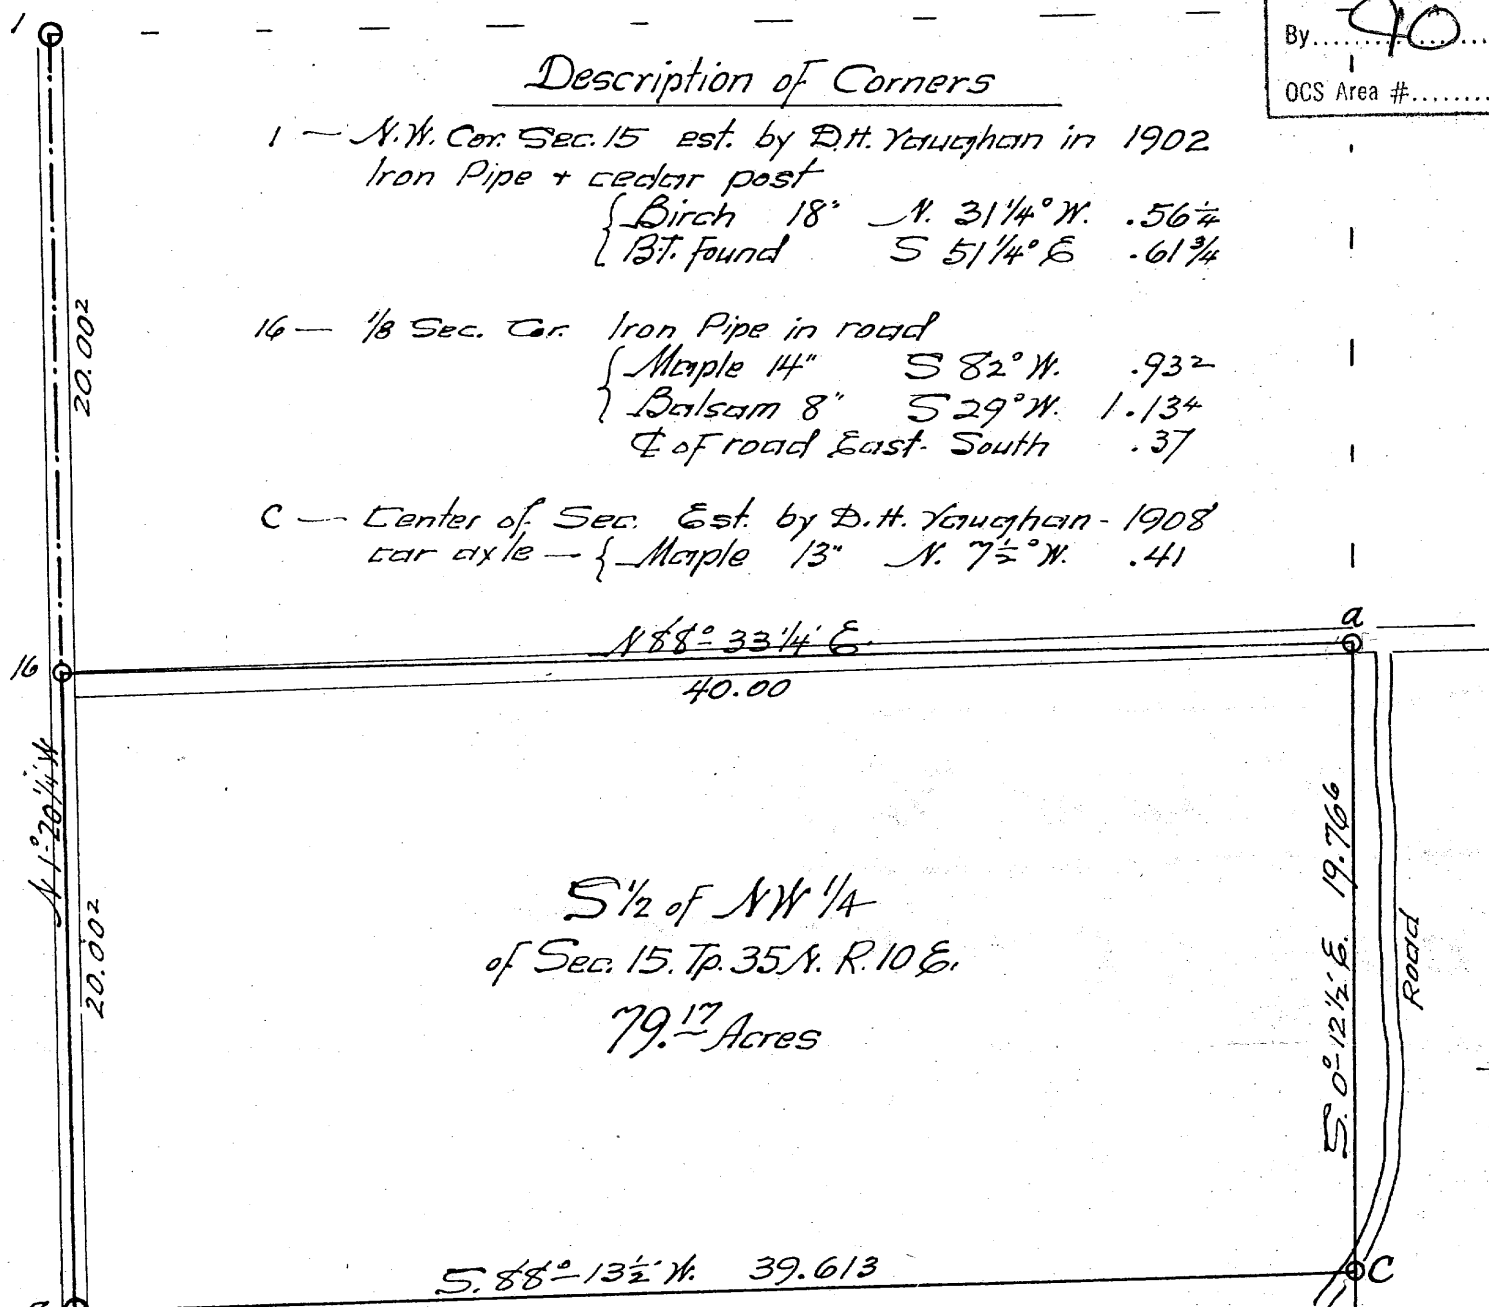 1
By........90....
OCS Area #........
Description of Corners
1 — N.W. Cor. Sec. 15 est. by D.H. Vaughan in 1902
Iron Pipe + cedar post
{ Birch 18" N. 31 1/4° W. .56 1/4
{ B.T. Found S 51 1/4° E .61 3/4
16 — 1/8 Sec. Cor. Iron Pipe in road
{ Maple 14" S 82° W. .93²
{ Balsam 8" S 29° W. 1.13⁴
℄ of road East - South .37
C — Center of Sec. Est. by D.H. Vaughan - 1908
car axle — { Maple 13" N. 7 1/2° W. .41
20.00²
a
N 88° - 33 1/4' E.
16
40.00
N 1° - 20 1/4' W
20.00²
S 1/2 of NW 1/4
of Sec. 15. Tp. 35 N. R. 10 E.
79.17 Acres
S. 0° - 12 1/2' E. 19.76⁶
Road
S. 88° - 13 1/2' W. 39.613
C